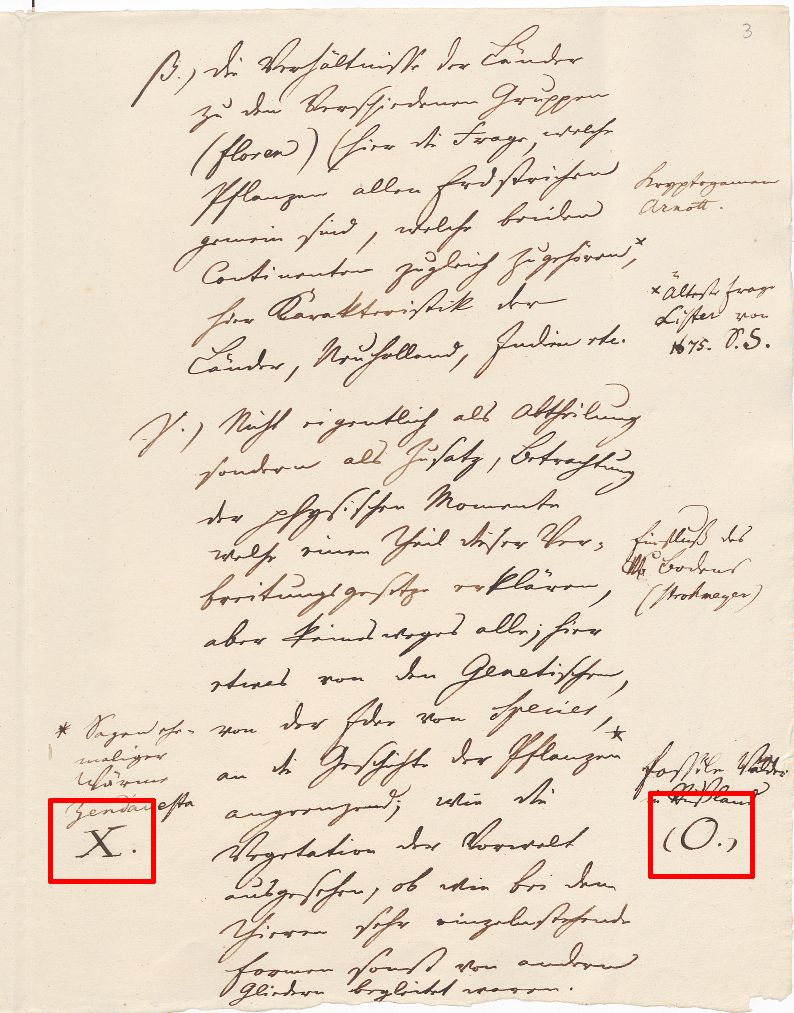 3
β.) die Verhältnisse der Länder
zu den Verschiedenen Gruppen
(floren) (hier die Frage, welche
Pflanzen allen Erdstrichen
gemein sind, welche beiden
Continenten zugleich zugehören*,
hier Karakteristik der
Länder, Neuholland, Indien etc.
Kryptogamen
Arnott.
* Älteste Frage
Lister von
1675. S. S.
γ.) Nicht eigentlich als Abtheilung
sondern als Zusatz, Betrachtung
der physischen Momente
welche einen Theil dieser Ver-
breitungsgesetze erklären,
aber keinesweges alle; hier
etwas von den Genetischen,
von der Idee von Species,
an die Geschichte der Pflanzen*
angrenzend; wie die
Vegetation der Vorwelt
ausgesehen, ob wie bei den
Thieren sehr einzelnstehende
formen sonst von andern
Gliedern begleitet waren.
Einfluß des
Bodens
(Strohmeyer)
* Sagen ehe-
maliger
Wärme
Zendavesta
X.
fossile Wälder
in Rußland
(O.)